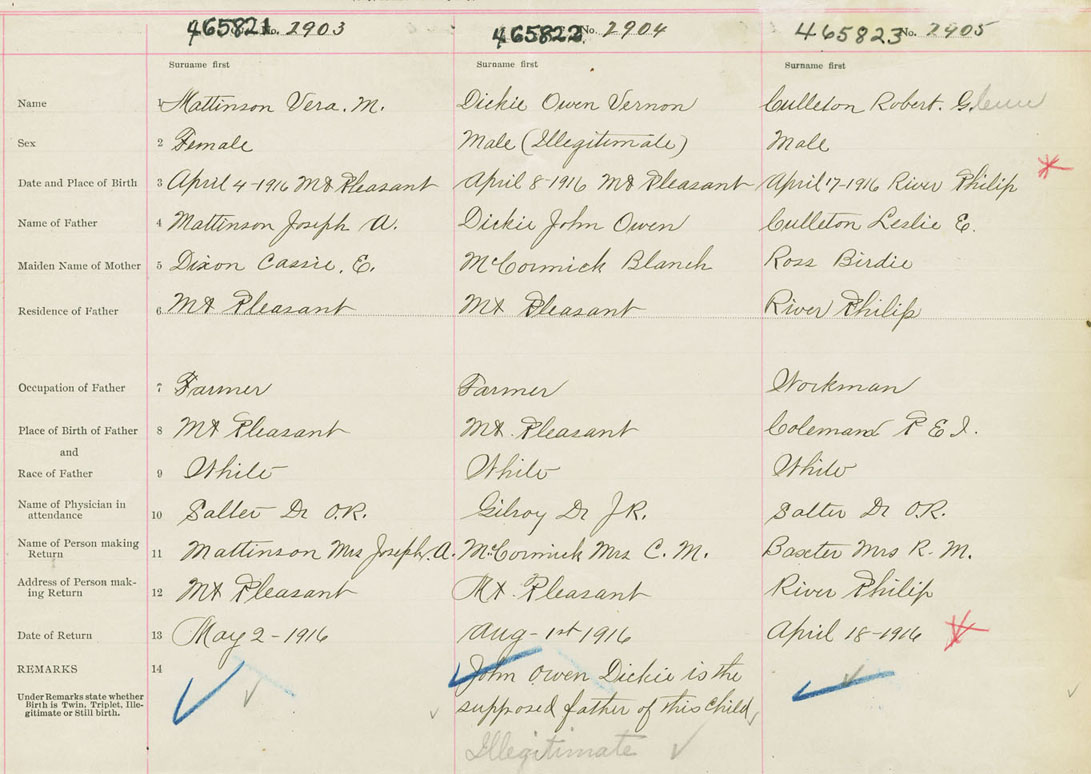 465821 No. 2903 465822 No. 2904 465823 No. 2905
Surname first Surname first Surname first
Name 1 Mattinson Vera. M. Dickie Owen Vernon Culleton Robert. Glenn
Sex 2 Female Male (Illegitimate) Male
Date and Place of Birth 3 April 4-1916 Mt Pleasant April 8-1916 Mt Pleasant April 17-1916 River Philip
Name of Father 4 Mattinson Joseph A. Dickie John Owen Culleton Leslie E.
Maiden Name of Mother 5 Dixon Cassie. E. McCormick Blanch Ross Birdie
Residence of Father 6 Mt Pleasant Mt Pleasant River Philip
Occupation of Father 7 Farmer Farmer Workman
Place of Birth of Father 8 Mt Pleasant Mt. Pleasant Colemand P E I.
and
Race of Father 9 White White White
Name of Physician in
attendance 10 Salter Dr O.R. Gilroy Dr J R. Salter Dr O.R.
Name of Person making
Return 11 Mattinson Mrs Joseph. A. McCormick Mrs C. M. Baxter Mrs R. M.
Address of Person mak-
ing Return 12 Mt Pleasant Mt. Pleasant River Philip
Date of Return 13 May 2-1916 Aug-1st 1916 April 18-1916
REMARKS 14 John Owen Dickie is the
Under Remarks state whether
Birth is Twin, Triplet, Ille-
gitimate or Still birth. supposed father of this Child,
Illegitimate